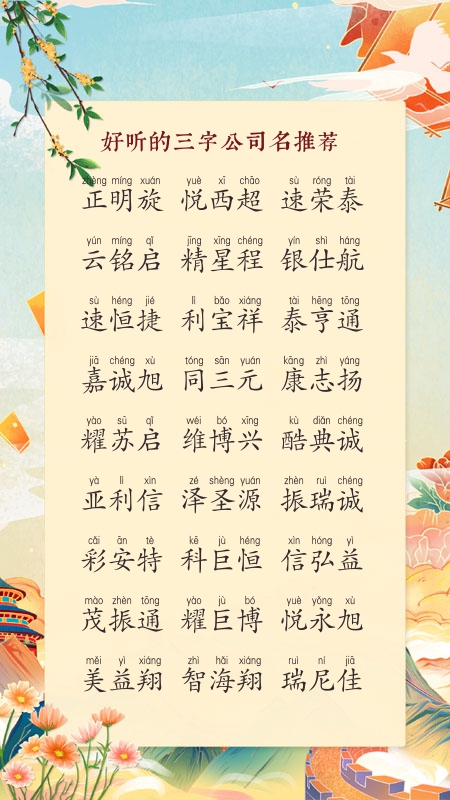 好听的三字公司名推荐
zhèng míng xuán yuè xī chāo sù róng tài
正明旋 悦西超 速荣泰
yún míng qǐ jīng xīng chéng yín shì háng
云铭启 精星程 银仕航
sù héng jié lì bǎo xiáng tài hēng tōng
速恒捷 利宝祥 泰亨通
jiā chéng xù tóng sān yuán kāng zhì yáng
嘉诚旭 同三元 康志扬
yào sū qǐ wéi bó xīng kù diǎn chéng
耀苏启 维博兴 酷典诚
yà lì xìn zé shèng yuán zhèn ruì chéng
亚利信 泽圣源 振瑞诚
cǎi ān tè kē jù héng xìn hóng yì
彩安特 科巨恒 信弘益
mào zhèn tōng yào jù bó yuè yǒng xù
茂振通 耀巨博 悦永旭
měi yì xiáng zhì hǎi xiáng ruì ní jiā
美益翔 智海翔 瑞尼佳